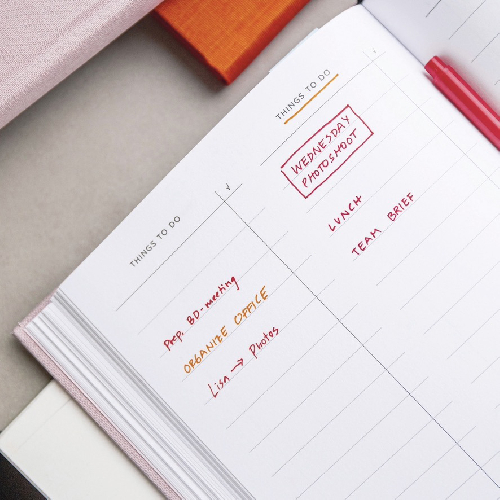 THINGS TO DO
Prep BD-meeting
ORGANIZE OFFICE
Lisa → Photos
THINGS TO DO
WEDNESDAY
PHOTOSHOOT
LUNCH
TEAM BRIEF